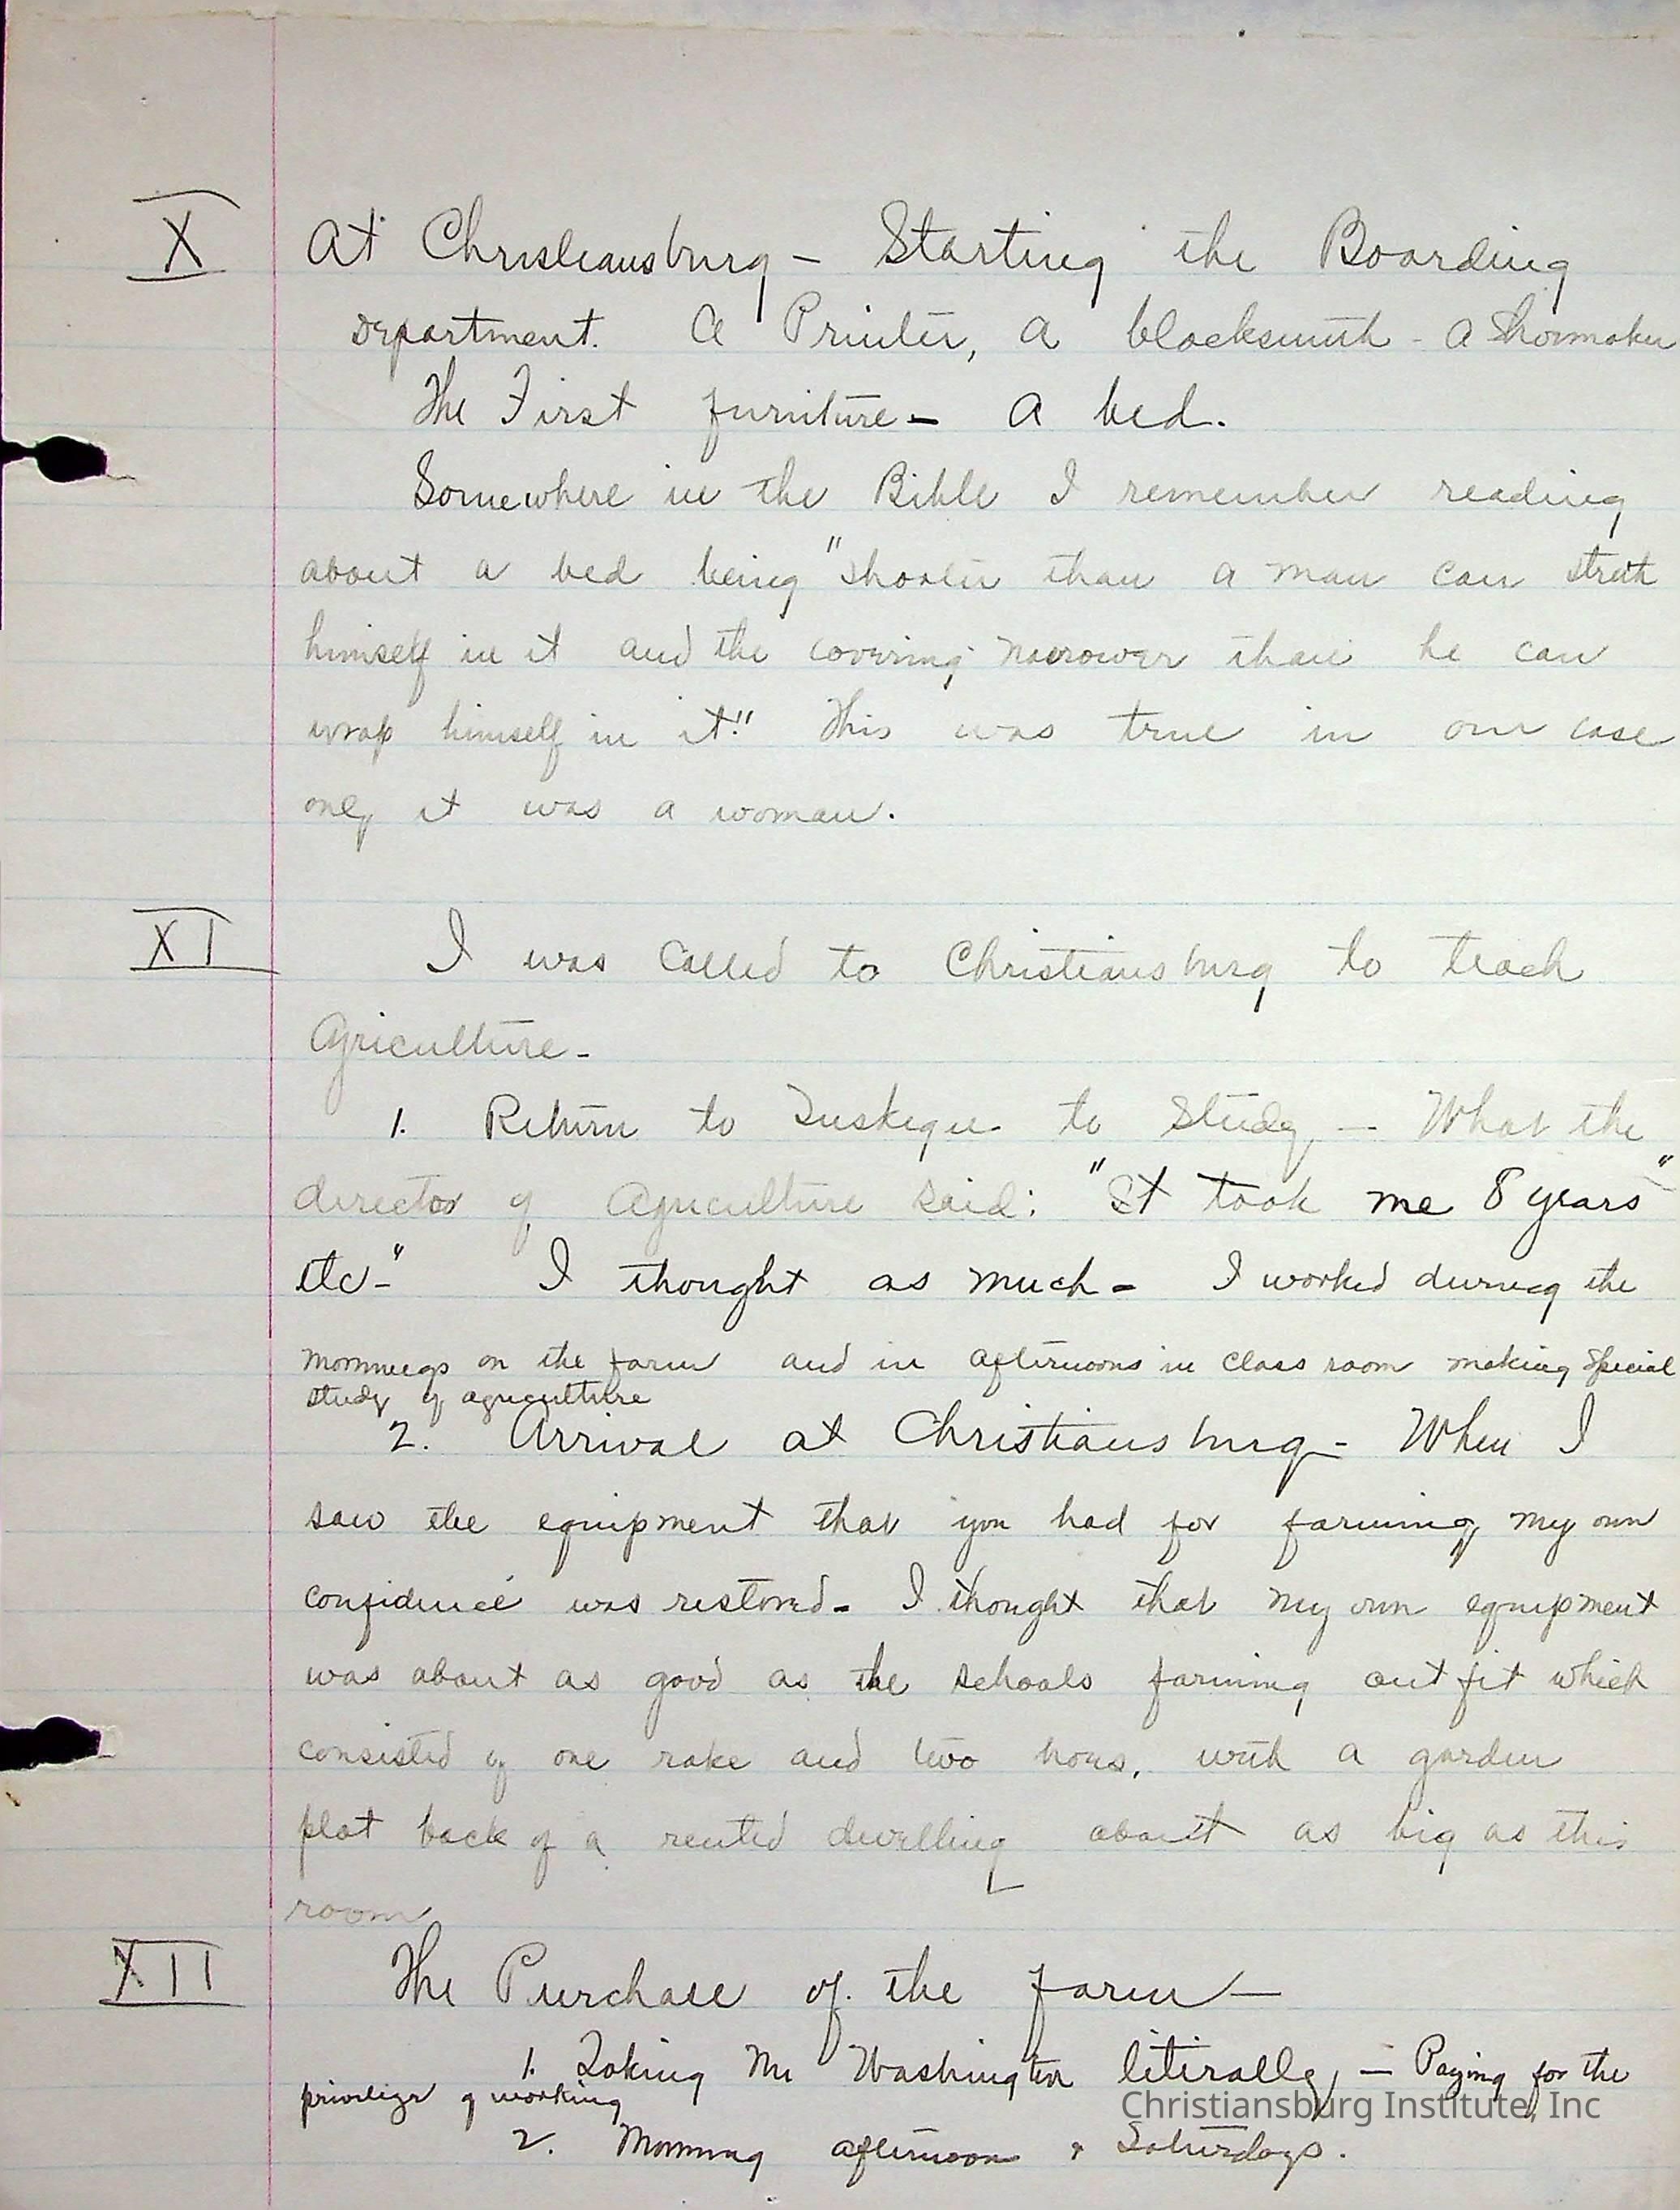 X At Christiansburg - Starting the Boarding
Department. A Printer, a blacksmith - a Shoemaker
The First furniture - a bed.
Somewhere in the Bible I remember reading
about a bed being "shorter than a man can streth
himself in it and the covering narrower than he can
wrap himself in it." This was true in our case
only it was a woman.
XI I was called to Christiansburg to teach
Agriculture -
1. Return to Tuskegee to Study, - What the
director of Agriculture said: "It took me 8 years"
etc-" I thought as much - I worked during the
mornings on the farm and in afternoons in class room making special
study of agriculture
2. Arrival at Christiansburg - When I
saw the equipment that you had for farming, my own
confidence was restored - I thought that my own equipment
was about as good as the schools farming outfit which
consisted of one rake and two hoes, with a garden
plot back of a rented dwelling about as big as this
room
XII The Purchase of the farm -
1. Taking Mr Washington literally, - Paying for the
privilege of working
2. Morning afternoon & Saturdays.
Christiansburg Institute, Inc